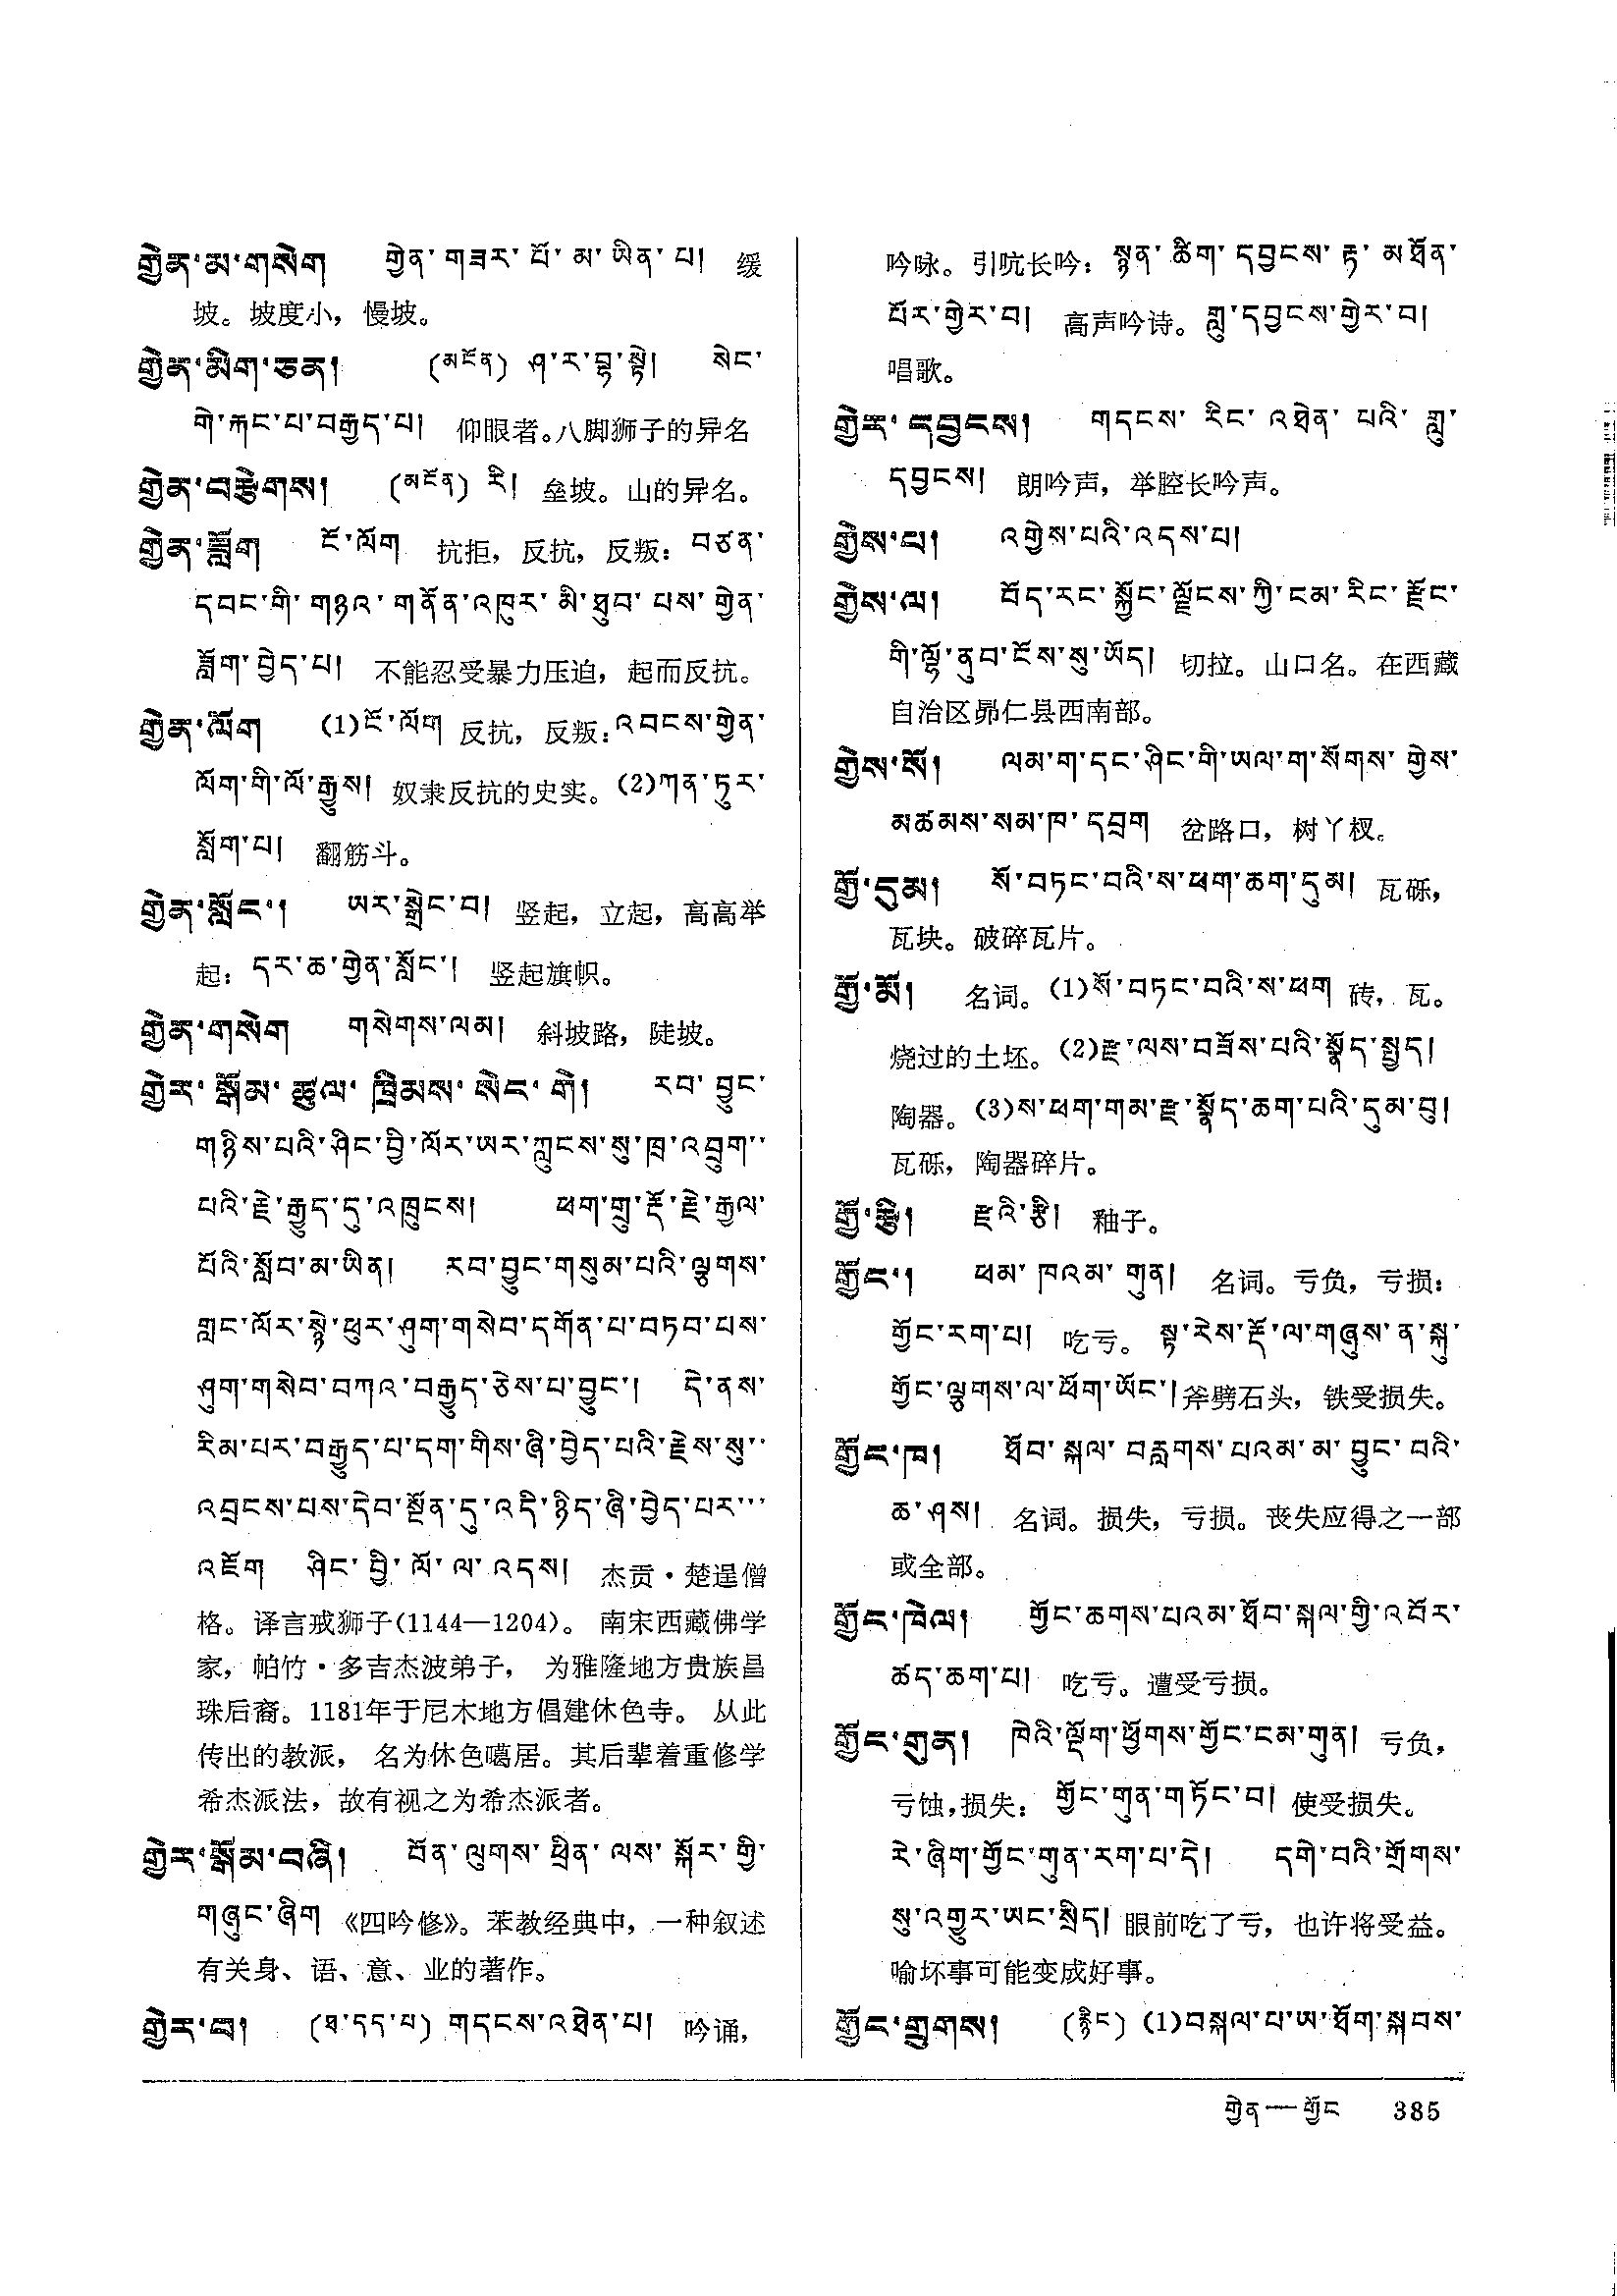 གྱེན་མ་གསེག གྱེན་གཟར་པོ་མ་ཡིན་པ། 缓
坡。坡度小，慢坡。
གྱེན་མིག་ཅན། (མངོན) ཤ་ར་བྷ་སྟེ། སེང་
གེ་རྐང་པ་བརྒྱད་པ། 仰眼者。八脚狮子的异名
གྱེན་བརྩེགས། (མངོན) རི། 垒坡。山的异名。
གྱེན་ཟློག ངོ་ལོག 抗拒，反抗，反叛：བཙན་
དབང་གི་གཉའ་གནོན་འཁུར་མི་ཐུབ་པས་གྱེན་
ཟློག་བྱེད་པ། 不能忍受暴力压迫，起而反抗。
གྱེན་ལོག (1)ངོ་ལོག 反抗，反叛：འབངས་གྱེན་
ལོག་གི་ལོ་རྒྱུས། 奴隶反抗的史实。(2)ཀན་ཏུར་
སློག་པ། 翻筋斗。
གྱེན་སློང་། ཡར་སྒྲེང་བ། 竖起，立起，高高举
起：དར་ཆ་གྱེན་སློང་། 竖起旗帜。
གྱེན་གསེག གསེགས་ལམ། 斜坡路，陡坡。
གྱེར་སྒོམ་ཚུལ་ཁྲིམས་སེང་གེ། རབ་བྱུང་
གཉིས་པའི་ཤིང་བྱི་ལོར་ཡར་ཀླུངས་སུ་ཁྲ་འབྲུག་
པའི་རྗེ་རྒྱུད་དུ་འཁྲུངས། ཕག་གྲུ་རྡོ་རྗེ་རྒྱལ་
པོའི་སློབ་མ་ཡིན། རབ་བྱུང་གསུམ་པའི་ལྕགས་
གླང་ལོར་སྙེ་ཕུར་ཤུག་གསེབ་དགོན་པ་བཏབ་པས་
ཤུག་གསེབ་བཀའ་བརྒྱུད་ཅེས་པ་བྱུང་། དེ་ནས་
རིམ་པར་བརྒྱུད་པ་དག་གིས་ཞི་བྱེད་པའི་རྗེས་སུ་
འབྲངས་པས་དེབ་སྔོན་དུ་འདི་ཉིད་ཞི་བྱེད་པར་
འཇོག ཤིང་བྱི་ལོ་ལ་འདས། 杰贡·楚逞僧
格。译言戒狮子(1144—1204)。南宋西藏佛学
家，帕竹·多吉杰波弟子，为雅隆地方贵族昌
珠后裔。1181年于尼木地方倡建休色寺。从此
传出的教派，名为休色噶居。其后辈着重修学
希杰派法，故有视之为希杰派者。
གྱེར་སྒོམ་བཞི། བོན་ལུགས་ཕྲིན་ལས་སྐོར་གྱི་
གཞུང་ཞིག 《四吟修》。苯教经典中，一种叙述
有关身、语、意、业的著作。
གྱེར་བ། (ཐ་དད་པ) གདངས་འཐེན་པ། 吟诵，
吟咏。引吭长吟：སྙན་ཚིག་དབྱངས་རྟ་མཐོན་
པོར་གྱེར་བ། 高声吟诗。གླུ་དབྱངས་གྱེར་བ།
唱歌。
གྱེར་དབྱངས། གདངས་རིང་འཐེན་པའི་གླུ་
དབྱངས། 朗吟声，举腔长吟声。
གྱེས་པ། འགྱེས་པའི་འདས་པ།
གྱེས་ལ། བོད་རང་སྐྱོང་ལྗོངས་ཀྱི་ངམ་རིང་རྫོང་
གི་ལྷོ་ནུབ་ངོས་སུ་ཡོད། 切拉。山口名。在西藏
自治区昴仁县西南部。
གྱེས་སོ། ལམ་ག་དང་ཤིང་གི་ཡལ་ག་སོགས་གྱེས་
མཚམས་སམ་ཁ་དབྲག 岔路口，树丫杈。
གྱོ་དུམ། སོ་བཏང་བའི་ས་ཕག་ཆག་དུམ། 瓦砾，
瓦块。破碎瓦片。
གྱོ་མོ། 名词。(1)སོ་བཏང་བའི་ས་ཕག 砖，瓦。
烧过的土坯。(2)རྫ་ལས་བཟོས་པའི་སྣོད་སྤྱད།
陶器。(3)ས་ཕག་གམ་རྫ་སྣོད་ཆག་པའི་དུམ་བུ།
瓦砾，陶器碎片。
གྱོ་རྩི། རྫའི་རྩི། 釉子。
གྱོང་། ཕམ་ཁའམ་གུན། 名词。亏负，亏损：
གྱོང་རག་པ། 吃亏。སྟ་རེས་རྡོ་ལ་གཞུས་ན་སྐུ་
གྱོང་ལྕགས་ལ་ཕོག་ཡོང་། 斧劈石头，铁受损失。
གྱོང་ཁ། ཐོབ་སྐལ་བརླགས་པའམ་མ་བྱུང་བའི་
ཆ་ཤས། 名词。损失，亏损。丧失应得之一部
或全部。
གྱོང་ཁེལ། གྱོང་ཆགས་པའམ་ཐོབ་སྐལ་གྱི་འབོར་
ཚད་ཆག་པ། 吃亏。遭受亏损。
གྱོང་གུན། ཁེའི་ལྡོག་ཕྱོགས་གྱོང་ངམ་གུན། 亏负，
亏蚀，损失：གྱོང་གུན་གཏོང་བ། 使受损失。
རེ་ཞིག་གྱོང་གུན་རག་པ་དེ། དགེ་བའི་གྲོགས་
སུ་འགྱུར་ཡང་སྲིད། 眼前吃了亏，也许将受益。
喻坏事可能变成好事。
གྱོང་གྲགས། (རྙིང) (1)བསྐལ་པ་ཨ་ཐོག་སྐབས་
གྱེན—གྱོང 385